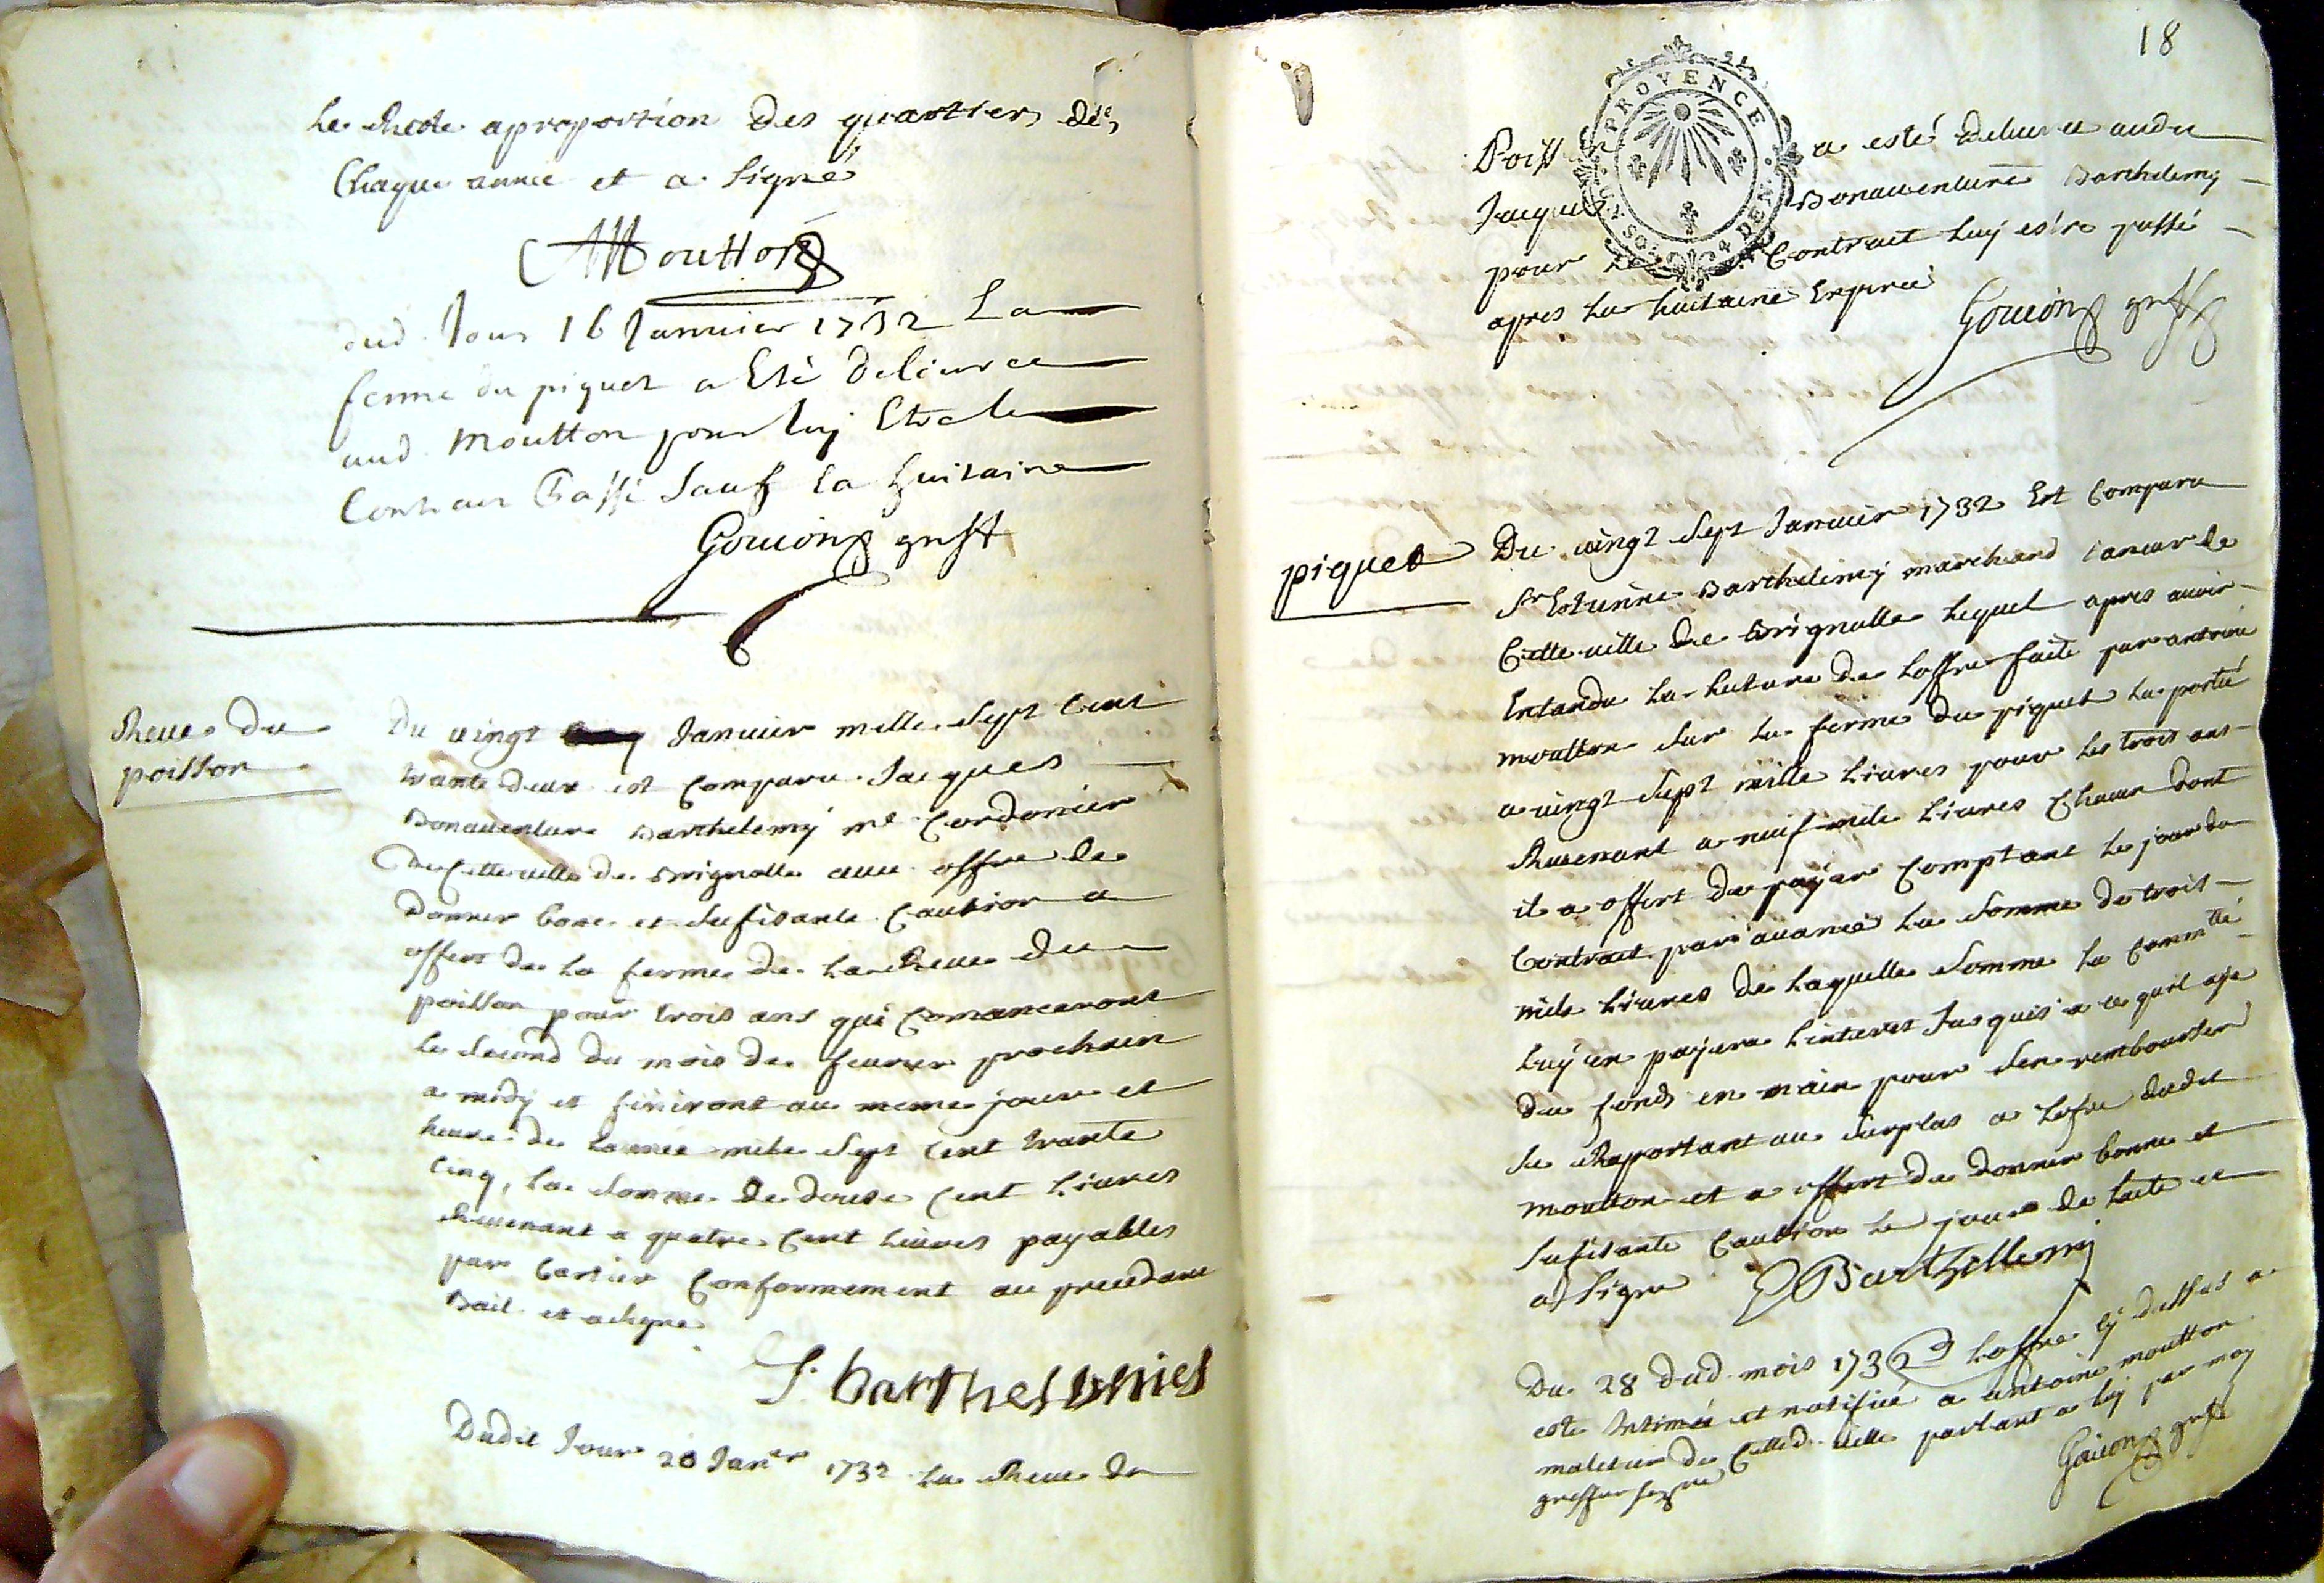 le Reste aproportion des quartiers de
Chaque année et a signé
AMoutton
dud. Jour 16 Janvier 1732 La
ferme du piquet a Esté delivree
aud. Moutton pour luy Etre le
Contrat Passé sauf la huitaine
Gouion greff
Reve du
poisson
Du vingt Janvier mille sept cent
trante deux est comparu Jacques
Bonaventure Barthelemy me Cordonier
De Cette ville de Brignolle avec offre de
donner bone et sufisante caution a
offert de la ferme de la Reve du
poisson pour trois ans qui Comanceront
le second du mois de fevrier prochain
a midy et finiront au meme jour et
heure de lannée mile sept cent trante
cinq, la somme de douse cent livres
Revenant a quatre cent livres payables
par Cartier Conformement au precedant
Bail et a signe
J. barthelemies
Dudit Jour 20 Janer 1732 la Reve du
18
PROVENCE
SOL 4 DEN.
Poiss a esté delivre audit
Jacques Bonaventure Barthelemy
pour le Contract luy estre passé
apres la huitaine Expiree
Gouion greff
piquet
Du vingt sept Janvier 1732 Est Comparu
Sr Estienne Barthelemy marchand taneur de
Cette ville de Brignolle lequel apres avoir
Entandu la lecture de loffre faite par antoine
moutton sur la ferme du piquet la porté
a vingt sept mille livres pour les trois ans
Revenant a neuf mile livres Chacun dont
il a offert de payer Comptant le jour du
Contract par avance la somme de trois
mile livres de laquelle somme la Commté
luy en payera linterest Jusquis a ce quil aye
du fonds en main pour sen rembourser
se Raportant au surplus a lofre dudit
moutton et a offert de donner bonne et
sufisante Caution le jour de lacte et
a signe EBarthellemy
Du 28 dud. mois 1732 loffre cy dessus a
esté Intimée et notifiée a antoine moutton
de Cetted. ville parlant a luy par moy
greffier sossigné
Gouion greff